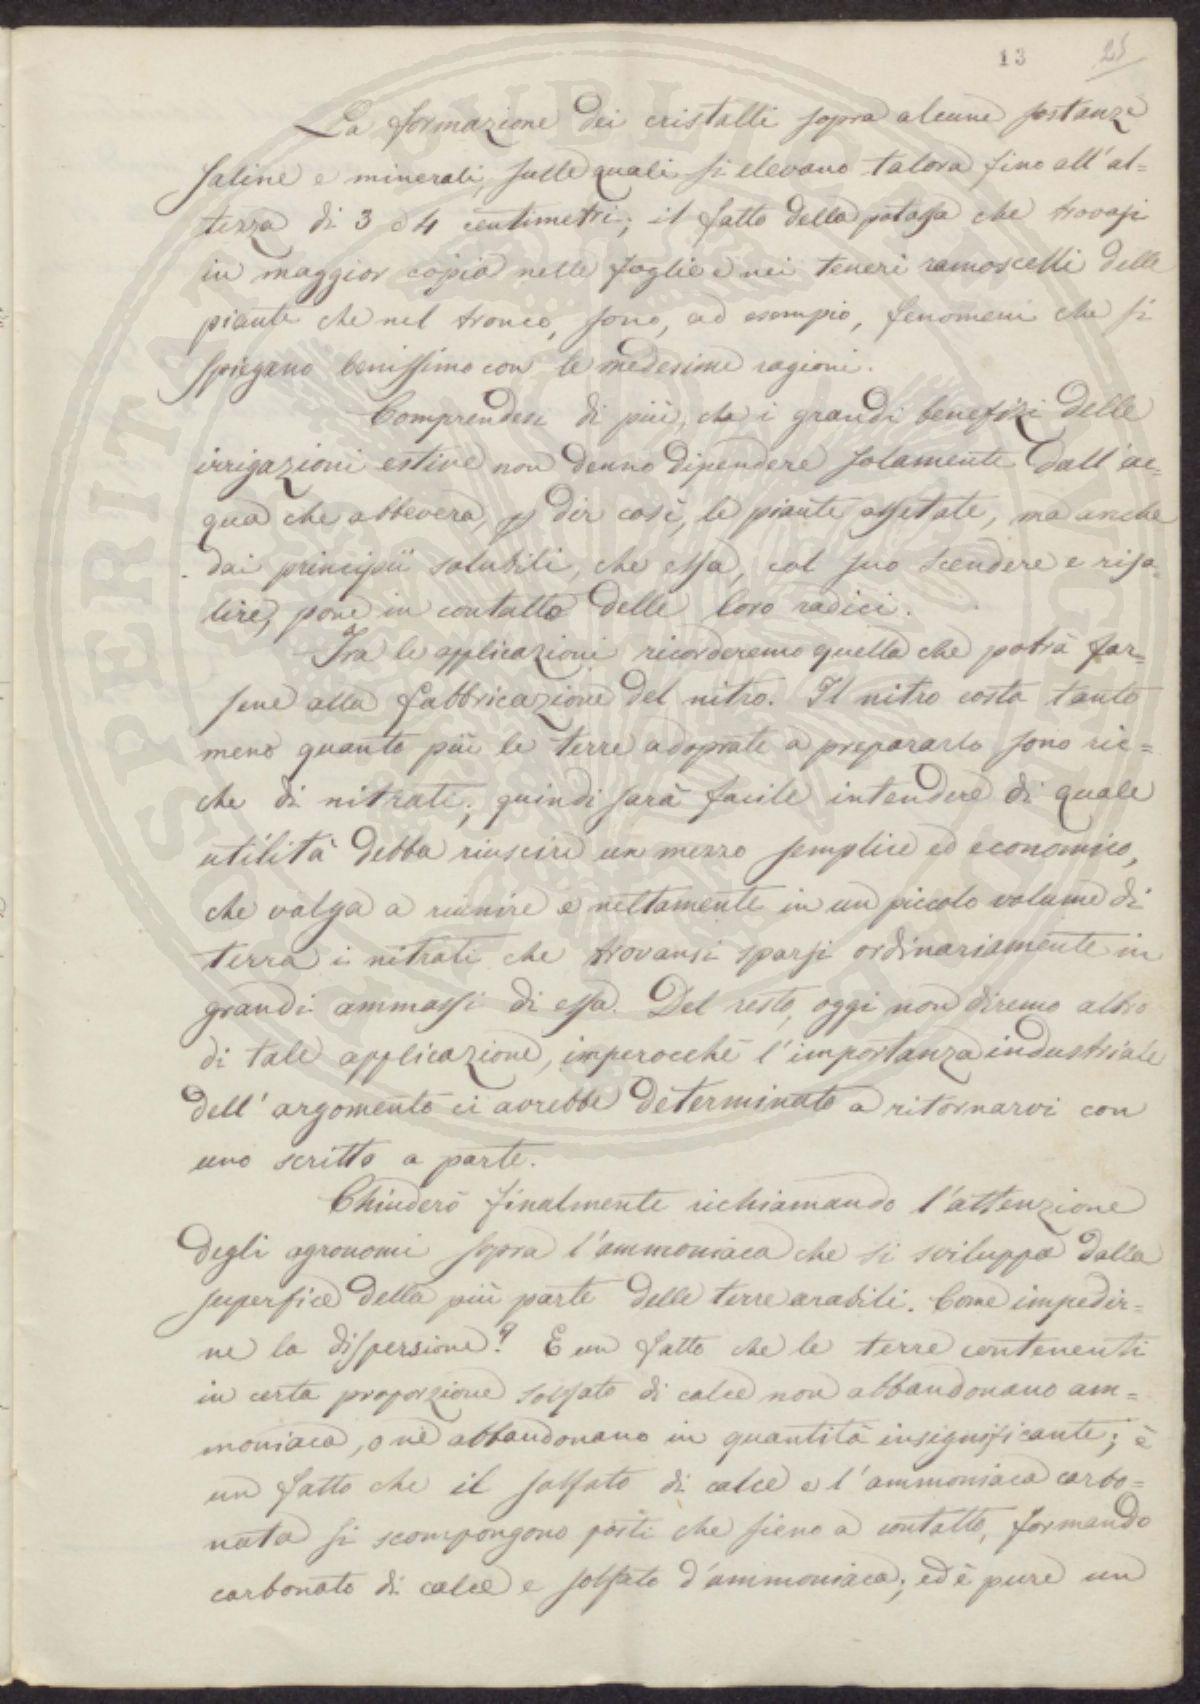 13 25
La formazione dei cristalli sopra alcune sostanze
saline e minerali, sulle quali si elevano talora fino all'al=
tezza di 3 o 4 centimetri; il fatto della potassa che trovasi
in maggior copia nelle foglie e nei teneri ramoscelli delle
piante che nel tronco, sono, ad esempio, fenomeni che si
spiegano benissimo con le medesime ragioni.
Comprendesi di più, che i grandi benefizi delle
irrigazioni estive non denno dipendere solamente dall'ac=
qua che abbevera, p dir così, le piante assetate, ma anche
dai principii solubili, che essa, col suo scendere e risa=
lire, pone in contatto delle loro radici.
Tra le applicazioni ricorderemo quella che potrà far=
sene alla fabbricazione del nitro. Il nitro costa tanto
meno quanto più le terre adoprate a prepararlo sono ric=
che di nitrati; quindi sarà facile intendere di quale
utilità debba riuscire un mezzo semplice ed economico,
che valga a riunire e nettamente in un piccolo volume di
terra i nitrati che trovansi sparsi ordinariamente in
grandi ammassi di essa. Del resto, oggi non diremo altro
di tale applicazione, imperocchè l'importanza industriale
dell'argomento ci avrebbe determinato a ritornarvi con
uno scritto a parte.
Chiuderò finalmente richiamando l'attenzione
degli agronomi sopra l'ammoniaca che si sviluppa dalla
superfice della più parte delle terre arabili. Come impedir=
ne la dispersione? E un fatto che le terre contenenti
in certa proporzione solfato di calce non abbandonano am=
moniaca, o nè abbandonano in quantità insignificante; è
un fatto che il solfato di calce e l'ammoniaca carbo=
nata si scompongono posti che sieno a contatto, formando
carbonato di calce e solfato d'ammoniaca; ed è pure un
PROSPERITATI PUBLICAE AUGENDAE